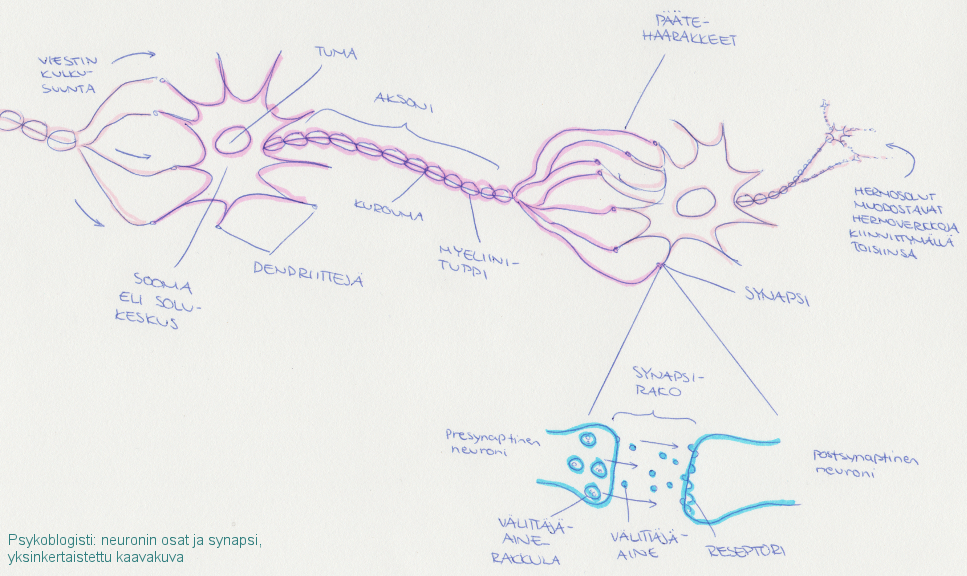 PÄÄTE-
HAARAKKEET
VIESTIN
KULKU-
SUUNTA
TUMA
AKSONI
KUROUMA
MYELIINI-
TUPPI
DENDRIITTEJÄ
SOOMA
ELI SOLU-
KESKUS
HERMOSOLUT
MUODOSTAVAT
HERMOVERKKOJA
KIINNITTYMÄLLÄ
TOISIINSA
SYNAPSI
SYNAPSI-
RAKO
presynaptinen
neuroni
postsynaptinen
neuroni
VÄLITTÄJÄ-
AINE-
RAKKULA
VÄLITTÄJÄ-
AINE
RESEPTORI
Psykoblogisti: neuronin osat ja synapsi,
yksinkertaistettu kaavakuva